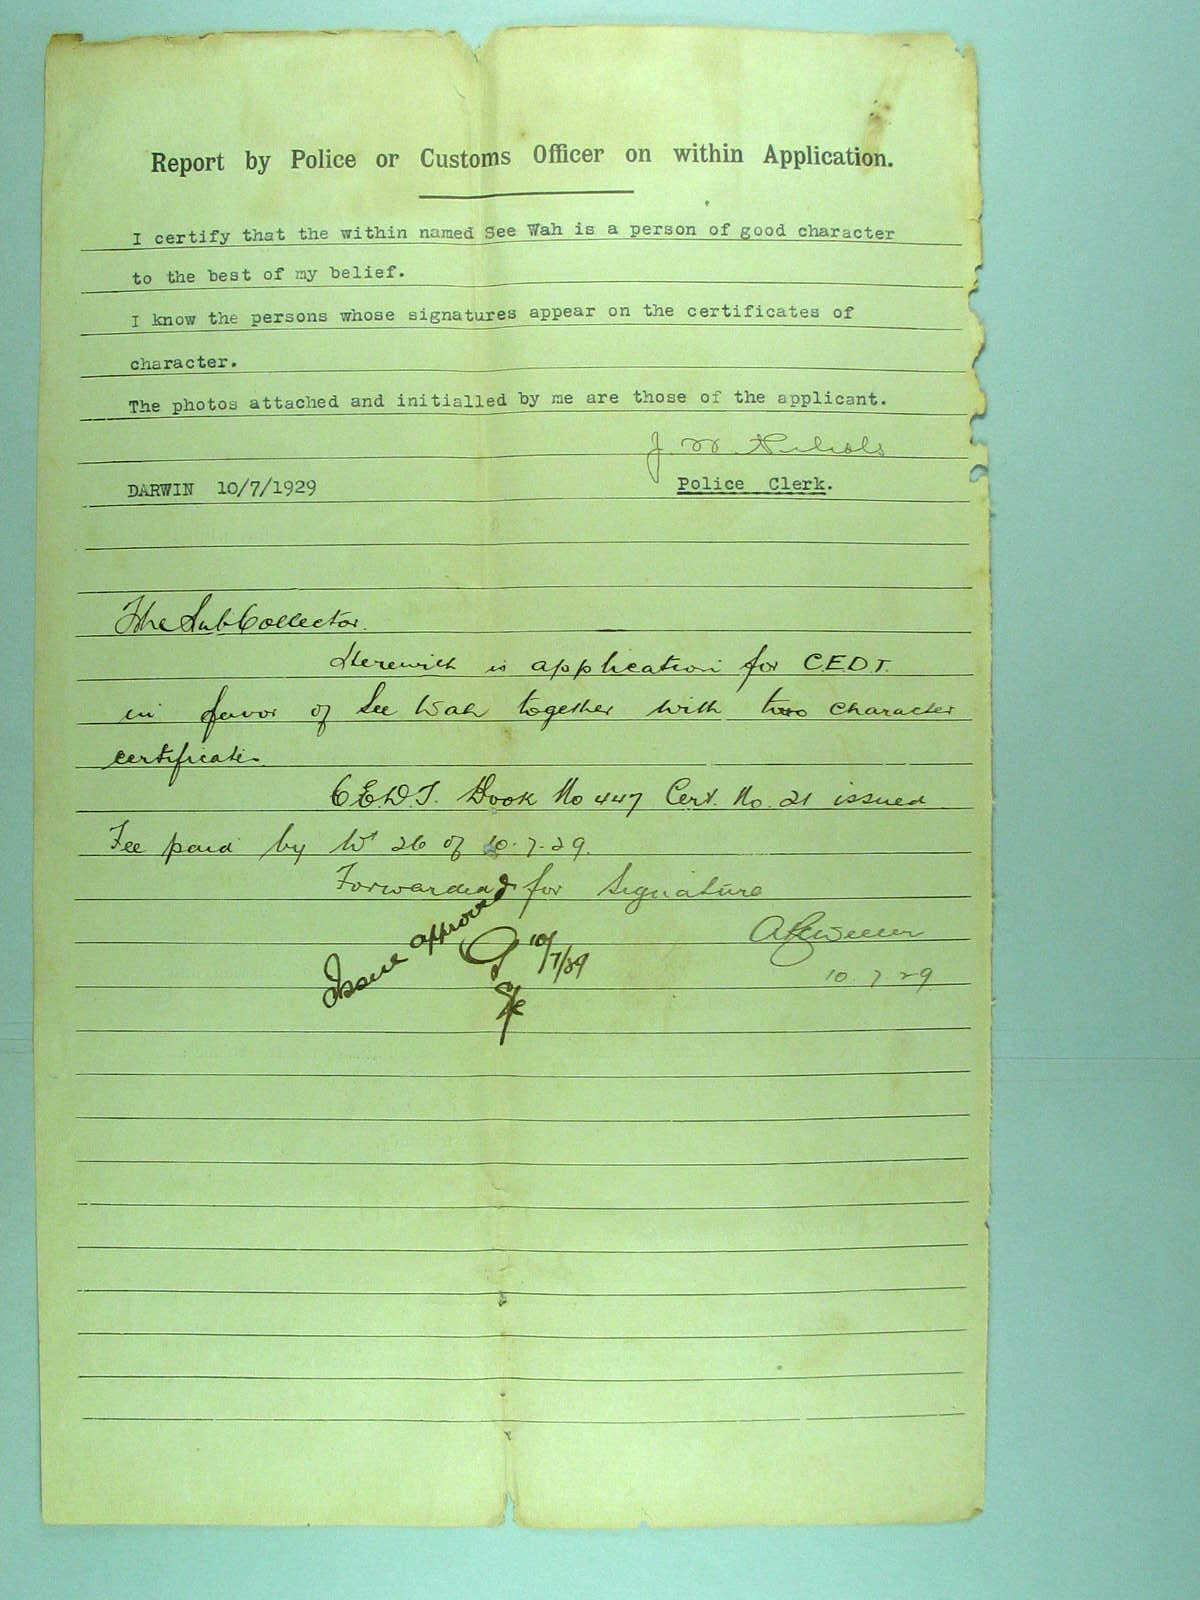 Report by Police or Customs Officer on within Application.
I certify that the within named See Wah is a person of good character
to the best of my belief.
I know the persons whose signatures appear on the certificates of
character.
The photos attached and initialled by me are those of the applicant.
J. W. Nichols
DARWIN 10/7/1929 Police Clerk.
The Sub Collector.
Herewith is application for C.E.D.T.
in favor of See Wah together with two character
certificates
C.E.D.T. Book No 447 Cert. No. 21 issued
Fee paid by 26 of 10.7.29.
Forwarded for Signature
Issue approved
10/7/29
10.7.29